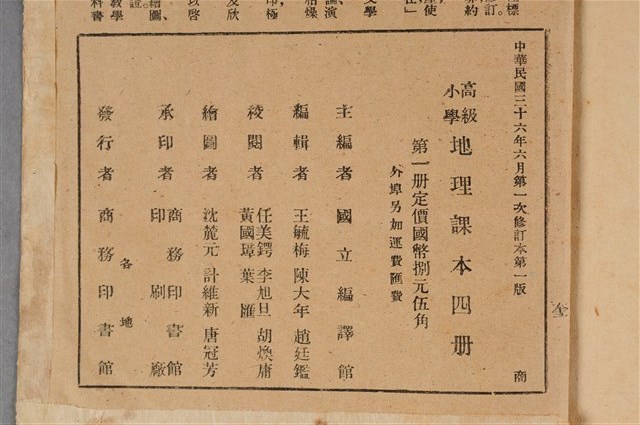 中華民國三十六年六月第一次修訂本第一版
商
高級
小學
地理課本四册
第一册定價國幣捌元伍角
外埠另加運費匯費
主編者 國立編譯館
編輯者 王毓梅 陳大年 趙廷鑑
校閱者 任美鍔 李旭旦 胡煥庸
黃國璋 葉匯
繪圖者 沈麓元 計維新 唐冠芳
承印者 商務印書館
印刷廠
發行者 各地
商務印書館